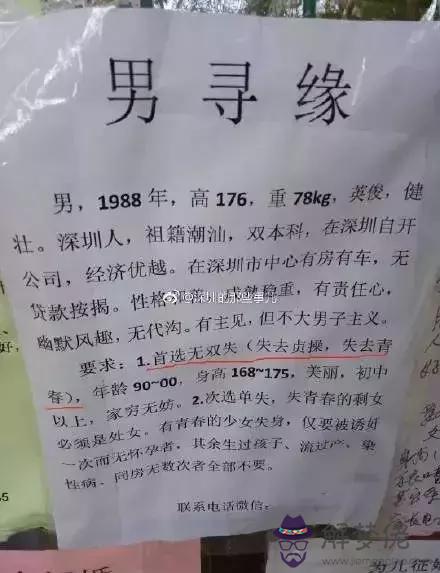 男寻缘
男，1988年，高176，重78kg，英俊，健
壮。深圳人，祖籍潮汕，双本科，在深圳自开
公司，经济优越。在深圳市中心有房有车，无
贷款按揭。性格 成熟稳重，有责任心，
@深圳的那些事儿
幽默风趣，无代沟。有主见，但不大男子主义。
要求：1.首选无双失（失去贞操，失去青
春），年龄90~00，身高168~175，美丽，初中
以上，家穷无妨。2.次选单失，失青春的剩女
必须是处女。有青春的少女失身，仅要被诱奸
一次而无怀孕者，其余生过孩子、流过产、染
性病、同房无数次者全部不要。
联系电话微信：
解梦佬
为儿征婚